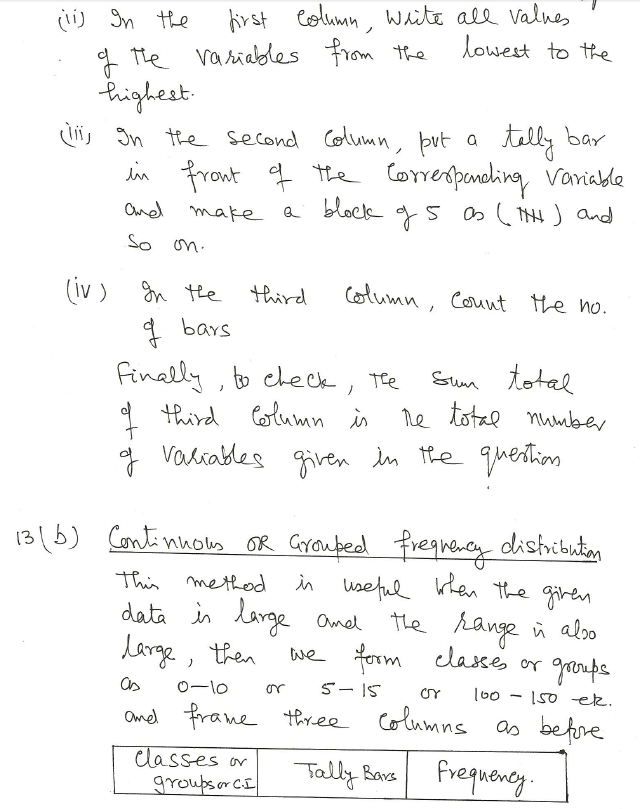 (ii) In the first column, write all values
of the variables from the lowest to the
highest.
(iii) In the second column, put a tally bar
in front of the corresponding variable
and make a block of 5 as (𝍸) and
so on.
(iv) In the third column, count the no.
of bars
Finally, to check, the sum total
of third column is the total number
of variables given in the question
13(b) Continuous OR Grouped frequency distribution
This method is useful when the given
data is large and the range is also
large, then we form classes or groups
as 0-10 or 5-15 or 100-150 etc.
and frame three columns as before
Classes or groups or C.I | Tally Bars | frequency.